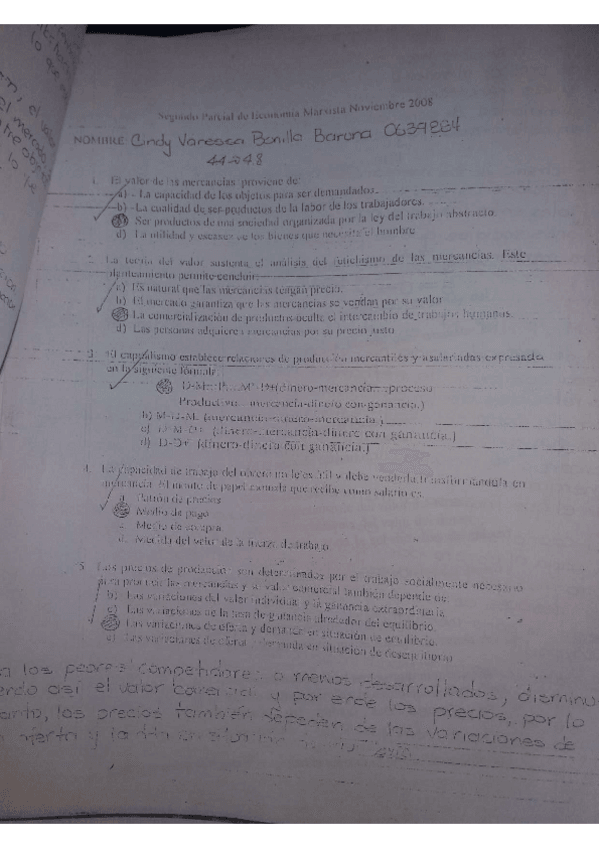 Segundo Parcial de Economía Marxista Noviembre 2008
NOMBRE Cindy Vanessa Bonilla Barona 0639284
44248
1. El valor de las mercancías proviene de:
a) - La capacidad de los objetos para ser demandados.
b) - La cualidad de ser productos de la labor de los trabajadores.
Ser productos de una sociedad organizada por la ley del trabajo abstracto
d) La utilidad y escasez de los bienes que necesita el hombre
2. La teoría del valor sustenta el análisis del fetichismo de las mercancías. Este
planteamiento permite concluir:
a) Es natural que las mercancías tengan precio.
b) El mercado garantiza que las mercancías se vendan por su valor
La comercialización de productos oculte el intercambio de trabajos humanos.
d) Las personas adquieren mercancías por su precio justo
3. El capitalismo establece relaciones de producción mercantiles y asalariadas expresada
en la siguiente fórmula:
D-M...P... M'-D'(dinero-mercancía-...proceso
Productivo...mercancía-dinero con ganancia.)
b) M-D-M. (mercancía-dinero-mercancía.)
c) D-M-D' (dinero-mercancía-dinero con ganancia.)
d) D-D' (dinero-dinero con ganancia.)
4. La capacidad de trabajo del obrero no le es útil y debe venderla transformándola en
mercancía. El monto de papel moneda que recibe como salario es:
a. Patrón de precios
Medio de pago
c. Medio de compra
d. Medida del valor de la fuerza de trabajo
5. Los precios de producción son determinados por el trabajo socialmente necesario
para producir las mercancías y su valor comercial también depende de:
b) Las variaciones del valor individual y la ganancia extraordinaria
c) Las variaciones de la tasa de ganancia alrededor del equilibrio.
Las variaciones de oferta y demanda en situación de equilibrio.
Las variaciones de oferta y demanda en situación de desequilibrio
a los peores competidores o menos desarrollados, disminu
endo así el valor comercial y por ende los precios, por lo
tanto, los precios también dependen de las variaciones de
oferta y